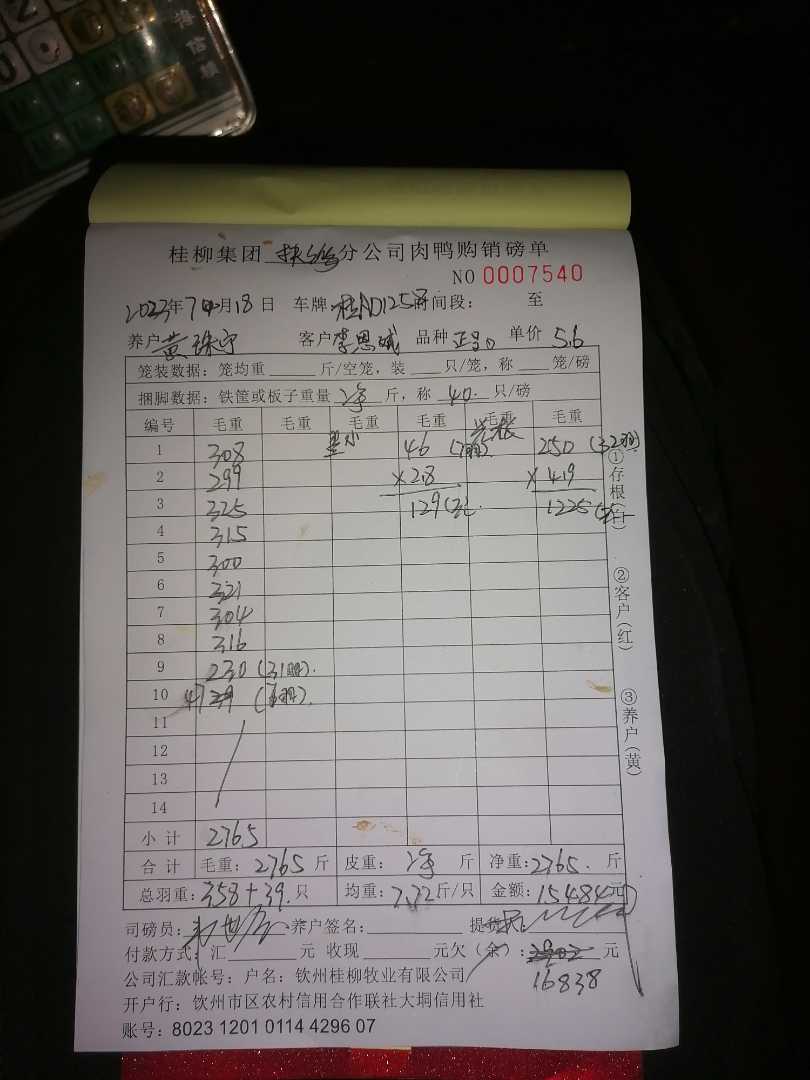 桂柳集团 分公司肉鸭购销磅单
NO 0007540
2023年7月18日 车牌:桂AD125 时间段: 至
养户黄珠宁 客户李思斌 品种 正 单价 5.6
笼装数据:笼均重 斤/空笼,装 只/笼,称 笼/磅
捆脚数据:铁筐或板子重量 净 斤,称 40. 只/磅
编号 毛重 毛重 毛重 毛重 毛重 毛重
1 308 小 46 250 (32羽)
2 299 ×2.8 ×4.9
3 325 129(元. 1225
4 315
5 300
6 321
7 304
8 316
9 230 (31羽).
10 47
11
12
13
14
小 计 2765
合 计 毛重: 2765 斤 皮重: 净 斤 净重: 2765. 斤
总羽重: 358+39. 只 均重: 7.72 斤/只 金额: 15484元
司磅员: 养户签名: 提货
付款方式:汇 元 收现 元欠(余): 元
16838
公司汇款帐号:户名:钦州桂柳牧业有限公司
开户行:钦州市区农村信用合作联社大垌信用社
账号:8023 1201 0114 4296 07
①存根(白)
②客户(红)
③养户(黄)